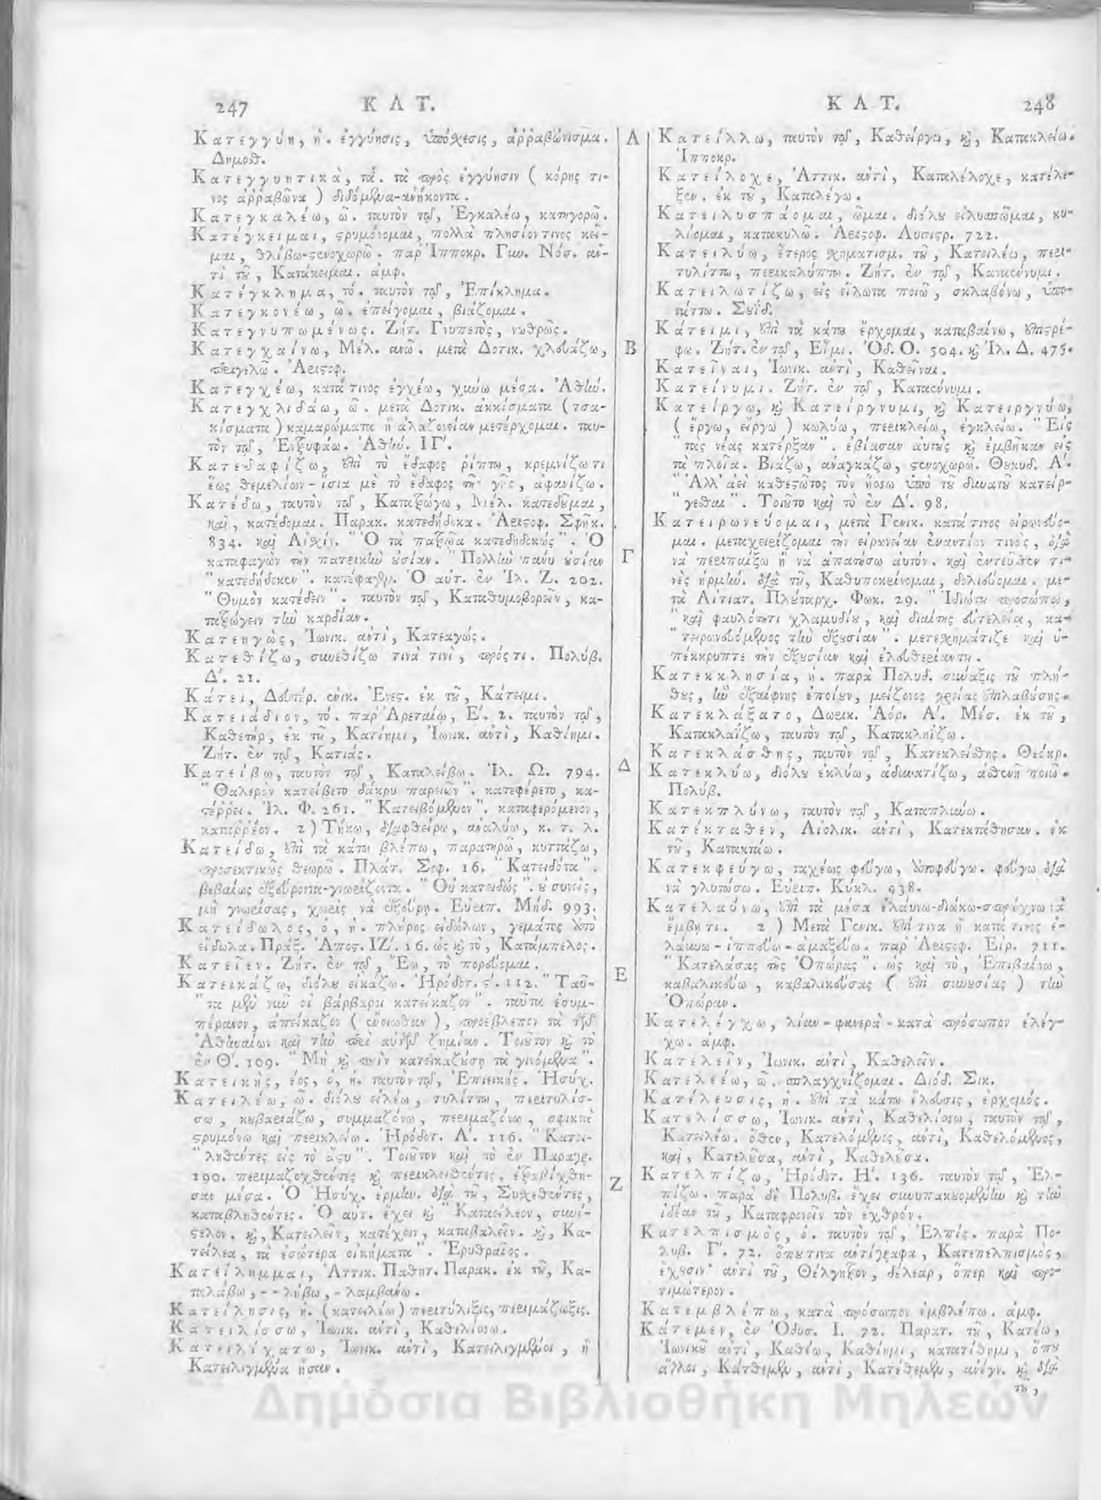 247 ΚΑΤ.
Κατεγγύη, ἡ. ἐγγύησις, ὑπόσχεσις, ἀρραβώνισμα.
Δημοσθ.
Κατεγγυητικὰ, τά. τὰ πρὸς ἐγγύησιν ( κόρης τι-
νος ἀρραβῶνα ) διδόμενα-ἀνήκοντα.
Κατεγκαλέω, ῶ. ταυτὸν τῷ, Ἐγκαλέω, κατηγορῶ.
Κατέγκειμαι, στρυμόνομαι, πολλὰ πλησίον τινος κεῖ-
μαι, θλίβω-στενοχωρῶ. παρ' Ἱπποκρ. Γυν. Νόσ. ἀν-
τὶ τοῦ, Κατάκειμαι. ἀμφ.
Κατέγκλημα, τό. ταυτὸν τῷ, Ἐπίκλημα.
Κατεγκονέω, ῶ. ἐπείγομαι, βιάζομαι.
Κατεγνυπωμένως. Ζήτ. Γνυπετὸς, νωθρῶς.
Κατεγχαίνω, Μέλ. ανῶ. μετὰ Δοτικ. χλευάζω,
περιγελῶ. Ἀριστοφ.
Κατεγχέω, κατά τινος ἐγχέω, χύνω μέσα. Ἀθήν.
Κατεγχλιδάω, ῶ. μετὰ Δοτικ. ἀκκίσματα ( τσα-
κίσματα ) καμαρώματα ἢ ἀλαζονείαν μετέρχομαι. ταυ-
τὸν τῷ, Ἐντρυφάω. Ἀθήν. ΙΓ'.
Κατεδαφίζω, ἐπὶ τὸ ἔδαφος ῥίπτω, κρεμνίζω τι
ἕως θεμελίων-ἴσια μὲ τὸ ἔδαφος τῆς γῆς, ἀφανίζω.
Κατέδω, ταυτὸν τῷ, Κατατρώγω, Μέλ. κατεδοῦμαι,
καὶ, κατέδομαι. Παρακ. κατεδήδοκα. Ἀριστοφ. Σφηκ.
834. καὶ Αἰσχίν. " Ὁ τὰ πατρῶα κατεδηδοκὼς ". Ὁ
καταφαγὼν τὴν πατρικὴν οὐσίαν. " Πολλὴν πάνυ οὐσίαν
" κατεδήδοκεν ". κατέφαγεν. Ὁ αὐτ. ἐν Ἰλ. Ζ. 202.
" Θυμὸν κατέδειν ". ταυτὸν τῷ, Καταθυμοβορεῖν, κα-
τατρώγειν τὴν καρδίαν.
Κατεηγὼς, Ἰωνικ. αντὶ, Κατεαγώς.
Κατεθίζω, συνεθίζω τινά τινὶ, πρός τι. Πολύβ.
Δ'. 21.
Κάτει, Δεύτερ. ἑνικ. Ἐνεστ. ἐκ τοῦ, Κάτειμι.
Κατειάδιον, τό. παρ' Ἀρεταίῳ, Ε'. 2. ταυτὸν τῷ,
Καθετὴρ, ἐκ τοῦ, Κατίημι, Ἰωνικ. αντὶ, Καθίημι.
Ζήτ. ἐν τῷ, Κατιάς.
Κατείβω, ταυτὸν τῷ, Καταλείβω. Ἰλ. Ω. 794.
" Θαλερὸν κατείβετο δάκρυ παρειῶν ". κατεφέρετο, κα-
τέῤῥει. Ἰλ. Φ. 261. " Κατειβόμενον ". καταφερόμενον,
καταῤῥέον. 2 ) Τήκω, διαφθείρω, ἀναλύω, κ. τ. λ.
Κατείδω, ἐπὶ τὰ κάτω βλέπω, παρατηρῶ, κυττάζω,
προσεκτικῶς θεωρῶ. Πλάτ. Σοφ. 16. " Κατειδότα ".
βεβαίως ἐξεύροντα-γνωρίζοντα. " Οὐ κατειδὼς ". οὐ συνεὶς,
μὴ γνωρίσας, χωρὶς νὰ ἐξεύρῃ. Εὐριπ. Μήδ. 993.
Κατείδωλος, ὁ, ἡ. πλήρης εἰδώλων, γεμάτος ἀπὸ
εἴδωλα. Πράξ. Ἀποστ. ΙΖ'. 16. ὡς καὶ τὸ, Κατάμπελος.
Κατεῖεν. Ζήτ. ἐν τῷ, Ἔω, τὸ πορεύομαι.
Κατεικάζω, διόλου εἰκάζω. Ἡρόδοτ. ς'. 112. " Ταῦ-
" τα μὲν νῦν οἱ βάρβαροι κατείκαζον ". ταῦτα ἐσυμ-
πέραινον, ἀπείκαζον ( ἐνόιωθαν ), προέβλεπον τὰ τῶν
Ἀθηναίων καὶ τὴν περὶ αὐτῶν ζημίαν. Τοιοῦτον καὶ τὸ
ἐν Θ'. 109. " Μὴ καὶ πρὶν κατεικαζούσῃ τὰ γινόμενα ".
Κατεικὴς, έος, ὁ, ἡ. ταυτὸν τῷ, Ἐπιεικής. Ἡσύχ.
Κατειλέω, ῶ. διόλου εἰλέω, τυλίττω, περιτυλίσ-
σω, κεβαριάζω, συμμαζόνω, περιμαζόνω, σφικτὰ
στρυμόνω καὶ περικλείω. Ἡρόδοτ. Α'. 116. " Κατει-
" ληθέντες εἰς τὸ ἄστυ ". Τοιοῦτον καὶ τὸ ἐν Παραγρ.
190. περιμαζοχθέντες καὶ περικλεισθέντες, ἐτραβίχθη-
σαν μέσα. Ὁ Ἡσύχ. ἑρμην. διὰ τοῦ, Συσχεθέντες,
καταβληθέντες. Ὁ αὐτ. ἔχει καὶ " Κατείλεον, συνέ-
στελον. καὶ, Κατειλεῖν, κατέχειν, καταβαλεῖν. καὶ, Κα-
τείλεα, τὰ ἐσώτερα οἰκήματα ". Ἐρυθραῖος.
Κατείλημμαι, Ἀττικ. Παθητ. Παρακ. ἐκ τοῦ, Κα-
ταλάβω, - - λήβω, - λαμβάνω.
Κατείλησις, ἡ. ( κατειλέω ) περιτύλιξις, περιμάζωξις.
Κατειλίσσω, Ἰωνικ. αντὶ, Καθελίσσω.
Κατειλίχατο, Ἰωνικ. αντὶ, Κατειλιγμένοι, ἢ
Κατειλιγμένα ἦσαν.
Α
Β
Γ
Δ
Ε
Ζ
ΚΑΤ. 248
Κατείλλω, ταυτὸν τῷ, Καθείργω, καὶ, Κατακλείω.
Ἱπποκρ.
Κατείλοχε, Ἀττικ. αντὶ, Καταλέλοχε, κατέλε-
ξεν. ἐκ τοῦ, Καταλέγω.
Κατειλυσπάομαι, ῶμαι. διόλου εἰλυσπῶμαι, κυ-
λίομαι, κατακυλῶ. Ἀριστοφ. Λυσιστρ. 722.
Κατειλύω, ἕτερος σχηματισμ. τοῦ, Κατειλέω, περι-
τυλίττω, περικαλύπτω. Ζήτ. ἐν τῷ, Καταείνυμι.
Κατειλωτίζω, εἰς εἵλωτα ποιῶ, σκλαβόνω, ὑπο-
τάττω. Σουΐδ.
Κάτειμι, ἐπὶ τὰ κάτω ἔρχομαι, καταβαίνω, ἐπιστρέ-
φω. Ζήτ. ἐν τῷ, Εἶμι. Ὀδ. Ο. 504. καὶ Ἰλ. Δ. 475.
Κατεῖναι, Ἰωνικ. αντὶ, Καθεῖναι.
Κατείνυμι. Ζήτ. ἐν τῷ, Καταέννυμι.
Κατείργω, καὶ Κατείργνυμι, καὶ Κατειργνύω,
( ἔργω, εἴργω ) κωλύω, περικλείω, ἐγκλείω. " Εἰς
" τὰς νέας κατέρξαν ". ἐβίασαν αὐτοὺς καὶ ἐμβῆκαν εἰς
τὰ πλοῖα. Βιάζω, ἀναγκάζω, στενοχωρῶ. Θουκυδ. Α'.
" Ἀλλ' ἀεὶ καθεστῶτος τὸν ἥσσω ὑπὸ τοῦ δυνατοῦ κατείρ-
" γεσθαι ". Τοιοῦτο καὶ τὸ ἐν Δ'. 98.
Κατειρωνεύομαι, μετὰ Γενικ. κατά τινος εἰρωνεύο-
μαι. μεταχειρίζομαι τὴν εἰρωνείαν ἐναντίον τινος, διὰ
νὰ περιπαίξω ἢ νὰ ἀπατήσω αὐτόν. καὶ ἐντεῦθεν τι-
νὲς ἡρμήν. διὰ τοῦ, Καθυποκρίνομαι, δολιεύομαι. με-
τὰ Αἰτιατ. Πλούταρχ. Φωκ. 29. " Ἰδιώτου προσώπῳ,
" καὶ φαυλότητι χλαμυδίου, καὶ διαίτης εὐτελείᾳ, κα-
" τειρωνευόμενος τὴν ἐξουσίαν ". μετεσχημάτιζε καὶ ὑ-
πέκκρυπτε τὴν ἐξουσίαν καὶ ἐλευθερίαν τη.
Κατεκκλησία, ἡ. παρὰ Πολυδ. σύναξις τοῦ πλή-
θους, ἣν ἐξαίφνης ἐποίουν, μείζονος χρείας ἐπιλαβούσης.
Κατεκλάξατο, Δωρικ. Ἀόρ. Α'. Μέσ. ἐκ τοῦ,
Κατακλαΐζω, ταυτὸν τῷ, Κατακληΐζω.
Κατεκλάσθης, ταυτὸν τῷ, Κατεκλείσθης. Θεόκρ.
Κατεκλύω, διόλου ἐκλύω, ἀδυνατίζω, ἀσθενῆ ποιῶ.
Πολύβ.
Κατεκπλύνω, ταυτὸν τῷ, Καταπλύνω.
Κατέκταθεν, Αἰολικ. αντὶ, Κατεκτάθησαν. ἐκ
τοῦ, Κατακτάω.
Κατεκφεύγω, ταχέως φεύγω, ἀποφεύγω. φεύγω διὰ
νὰ γλυτώσω. Εὐριπ. Κύκλ. 938.
Κατελαύνω, ἐπὶ τὰ μέσα ἐλαύνω-διώκω-σπρώχνω νὰ
ἔμβῃ τι. 2 ) Μετὰ Γενικ. ἐπί τινα ἢ κατά τινος ἐ-
λαύνω-ἱππεύω-ἁμαξεύω. παρ' Ἀριστοφ. Εἰρ. 711.
" Κατελάσας τῆς Ὀπώρας ". ὡς καὶ τὸ, Ἐπιβαίνω,
καβαλικεύω, καβαλικεύσας ( ἐπὶ συνουσίας ) τὴν
Ὀπώραν.
Κατελέγχω, λίαν-φανερὰ-κατὰ πρόσωπον ἐλέγ-
χω. ἀμφ.
Κατελεῖν, Ἰωνικ. αντὶ, Καθελεῖν.
Κατελεέω, ῶ. σπλαγχνίζομαι. Διόδ. Σικ.
Κατέλευσις, ἡ. ἐπὶ τὰ κάτω ἔλευσις, ἐρχομός.
Κατελίσσω, Ἰωνικ. αντὶ, Καθελίσσω, ταυτὸν τῷ,
Κατειλέω. ὅθεν, Κατελόμενος, αντὶ, Καθελόμενος,
καὶ, Κατελοῦσα, αντὶ, Καθελοῦσα.
Κατελπίζω, Ἡρόδοτ. Η'. 136. ταυτὸν τῷ, Ἐλ-
πίζω. παρὰ δὲ Πολυβ. ἔχει συνυπακουομένην καὶ τὴν
ἰδέαν τοῦ, Καταφρονεῖν τὸν ἐχθρόν.
Κατελπισμὸς, ὁ. ταυτὸν τῷ, Ἐλπίς. παρὰ Πο-
λυβ. Γ'. 72. ὅπου τινα ἀντίγραφα, Κατεπελπισμὸς,
ἔχουσιν αντὶ τοῦ, Θέλγητρον, δέλεαρ, ὅπερ καὶ προ-
τιμώτερον.
Κατεμβλέπω, κατὰ πρόσωπον ἐμβλέπω. ἀμφ.
Κάτεμεν, ἐν Ὀδυσ. Ι. 72. Παρατ. τοῦ, Κατέω,
Ἰωνικῶς αντὶ, Καθέω, Καθίημι, κατατίθημι, ὅπου
ἄλλοι, Κάτθεμεν, αντὶ, Κατέθεμεν, ἀνέγν. καὶ διὰ
τοῦ,
Δημόσια Βιβλιοθήκη Μηλεών